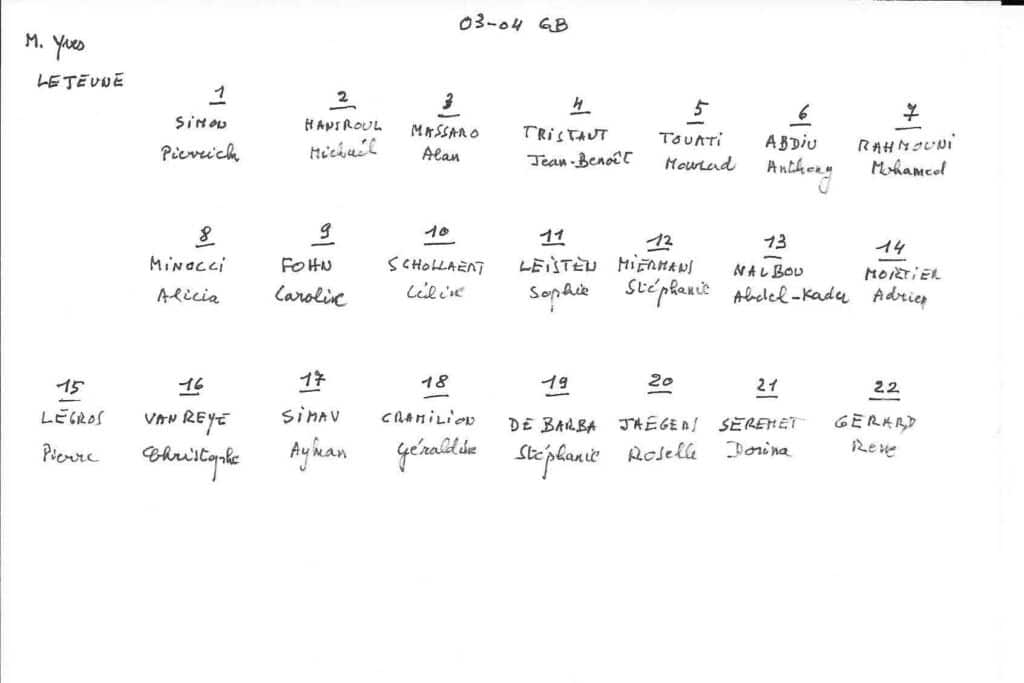 03-04 GB
M. Yves
LEJEUNE
1 2 3 4 5 6 7
SIMON HANSROUL MASSARO TRISTANT TOUATI ABDIU RAHMOUNI
Pierrick Michaël Alan Jean-Benoît Mourad Anthony Mohamed
8 9 10 11 12 13 14
MINOCCI FOHN SCHOLLAERT LEISTEN MIERMANS NALBOU MOITIER
Alicia Caroline Céline Sophie Stéphanie Abdel-Kader Adrien
15 16 17 18 19 20 21 22
LEGROS VANREYE SIMAV CRAMILION DE BARBA JAEGERS SEREMET GERARD
Pierre Christophe Ayhan Géraldine Stéphanie Roselle Dorina